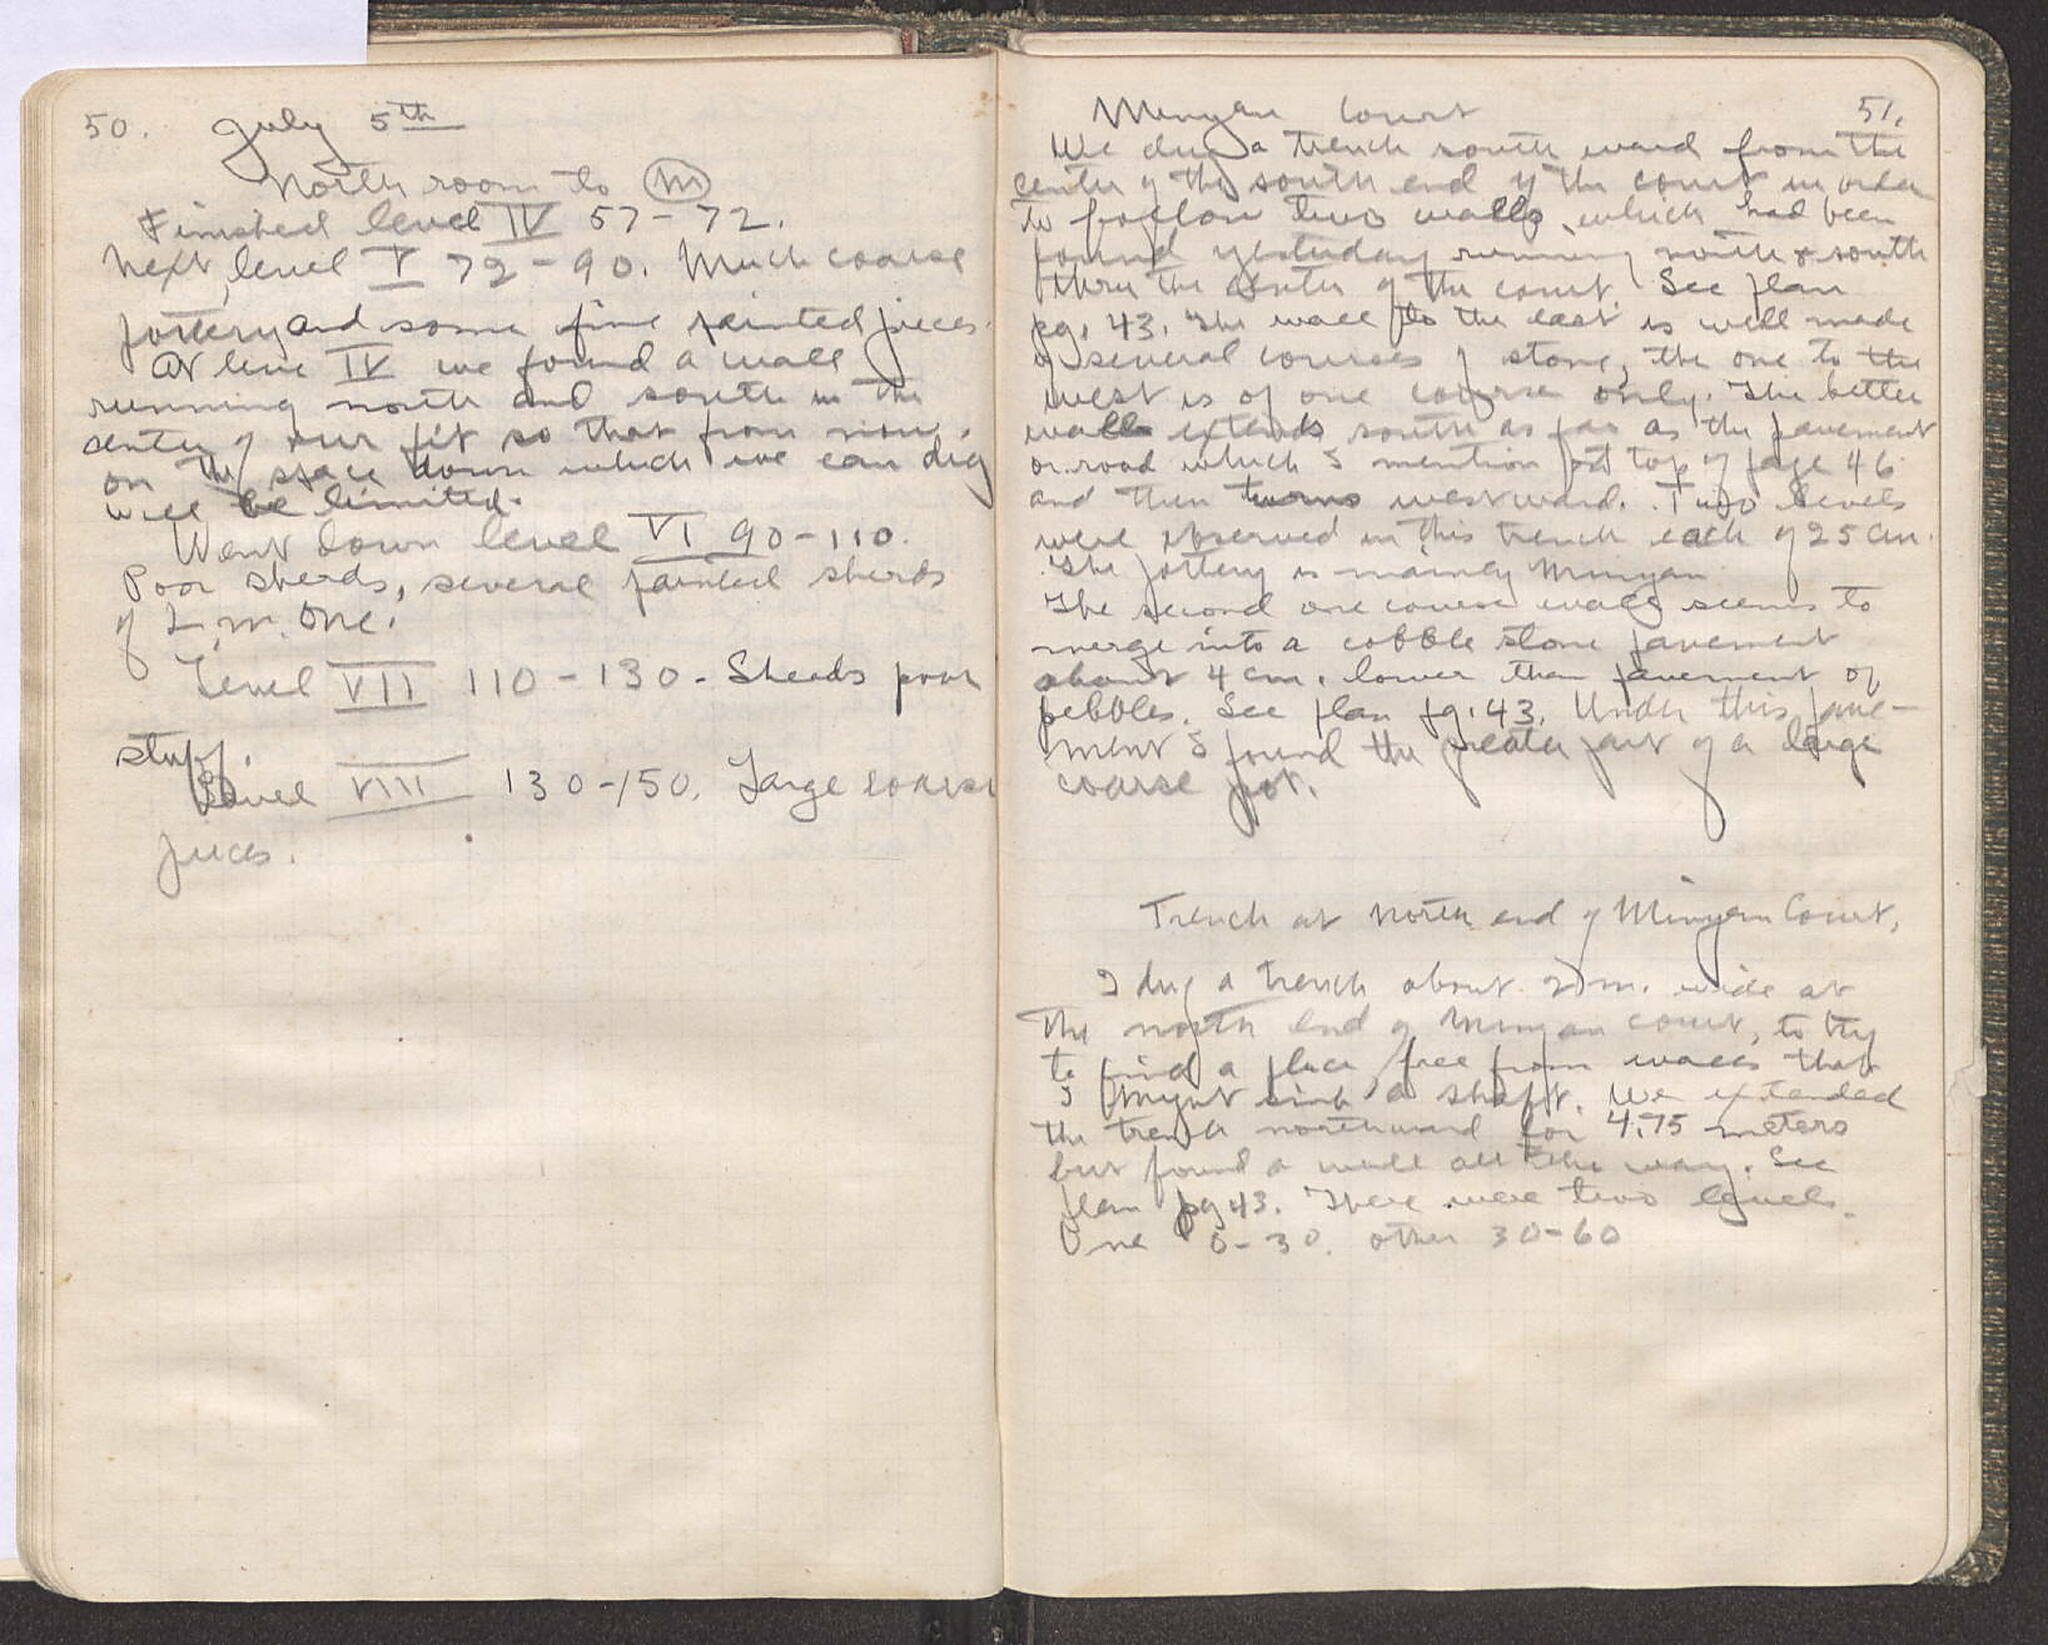 50. July 5th
North room to M
Finished level IV 57-72.
Next, level V 72-90. Much coarse
pottery and some fine painted pieces.
At line IV we found a wall
running north and south in the
center of our pit so that from now
on the space down which we can dig
will be limited.
Went down level VI 90-110.
Poor sherds, several painted sherds
of L.M. One.
Level VII 110-130. Sherds poor
stuff.
Level VIII 130-150. Large coarse
pieces.
Minyan Court 51.
We dug a trench south ward from the
center of the south end of the court in order
to follow two walls, which had been
found yesterday running north & south
thru the center of the court. See plan
pg. 43. The wall to the east is well made
of several courses of stone, the one to the
west is of one course only. The better
wall extends south as far as the pavement
or road which I mention at top of page 46
and then turns westward. Two levels
were observed in this trench each of 25 cm.
The pottery is mainly Minyan
The second one course wall seems to
merge into a cobble stone pavement
about 4 cm. lower than pavement of
pebbles. See plan pg. 43. Under this pave-
ment I found the greater part of a large
coarse pot.
Trench at north end of Minyan Court.
I dug a trench about 2 m. wide at
the north end of Minyan court, to try
to find a place free from walls that
I might sink a shaft. We extended
the trench northward for 4.75 meters
but found a wall all the way. See
plan pg 43. There were two levels.
One 0-30. other 30-60